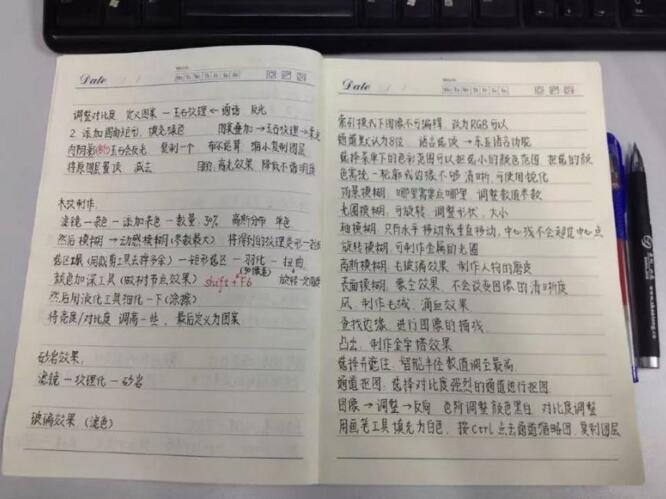 Date
调整对比度 定义图案 — 玉石纹理 ← 通道 反光
2. 添加圆角矩形,填充绿色 图案叠加→玉石纹理→柔光
内阴影 玉石会反光 复制一个 布尔运算 缩小复制图层
将原图层置顶 减去 高光效果 降低不透明度
木纹制作:
滤镜—杂色—添加杂色—数量:30% 高斯分布 单色
然后模糊→动感模糊(参数最大) 将得到的纹理变形一
矩形选区—羽化—扭曲
颜色加深工具(做树节点效果) shift+F6 旋转
然后用液化工具细化一下(涂擦)
将亮度/对比度 调高一些,最后定义为图案
砂岩效果:
滤镜—纹理化—砂岩
玻璃效果(滤色)
Date
索引模式下图像不可编辑,改为RGB可以
通道默认为8位
选择菜单下的色彩范围可以把缩小的颜色范围,把选的颜
色实统一轮廓或边缘不够清晰,可使用锐化
场景模糊:哪里需要点哪里,调整数值参数
光圈模糊:可旋转,调整形状,大小
移轴模糊:只有水平移动或垂直移动,中心
旋转模糊:可制作金属的光圈
高斯模糊:毛玻璃效果,制作人物的磨皮
表面模糊:雾尘效果,不会改变图像的清晰度
风:制作毛绒,滴血效果
查找边缘:进行图像的描线
凸出:制作金字塔效果
选择并遮住:智能半径数值调至最高
通道抠图:选择对比度强烈的通道进行抠图
图像→调整→反向 色阶调整颜色黑白,对比度调整
用画笔工具填充为白色,按Ctrl点击通道缩略图,复制图层